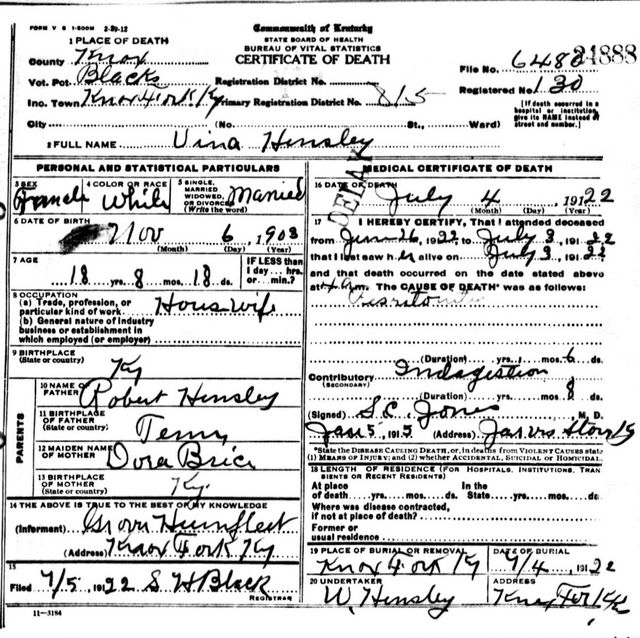 FORM V S 1-500M 2-29-12
Commonwealth of Kentucky
STATE BOARD OF HEALTH
BUREAU OF VITAL STATISTICS
CERTIFICATE OF DEATH
1 PLACE OF DEATH
County Knox
Vot. Pct. Blacks
Inc. Town Knox Fork Ky
Registration District No.
Primary Registration District No. 815
File No. 24888
Registered No. 130
[If death occurred in a hospital or institution, give its NAME instead of street and number.]
City (No. St., Ward)
2 FULL NAME Vina Hensley
PERSONAL AND STATISTICAL PARTICULARS
3 SEX Female
4 COLOR OR RACE White
5 SINGLE, MARRIED WIDOWED, OR DIVORCED (Write the word) Married
6 DATE OF BIRTH
Nov 6, 1903
(Month) (Day) (Year)
7 AGE
18 yrs. 8 mos. 18 ds.
IF LESS than 1 day... hrs. or... min.?
8 OCCUPATION
(a) Trade, profession, or particular kind of work Houswife
(b) General nature of industry
business or establishment in
which employed (or employer)
9 BIRTHPLACE
(State or country) Ky
PARENTS
10 NAME OF FATHER Robert Hensley
11 BIRTHPLACE OF FATHER (State or country) Tenn
12 MAIDEN NAME OF MOTHER Dora Brice
13 BIRTHPLACE OF MOTHER (State or country) Ky.
14 THE ABOVE IS TRUE TO THE BEST OF MY KNOWLEDGE
(Informant)
(Address) Knox Fork Ky
15
Filed 7/5 1922 S H Black
REGISTRAR
11-3184
MEDICAL CERTIFICATE OF DEATH
DELAY
16 DATE OF DEATH
July 4, 19122
(Month) (Day) (Year)
17 I HEREBY CERTIFY, That I attended deceased
from Jun 26, 1922, to July 3, 191 22
that I last saw her alive on July 3, 191 22
and that death occurred on the date stated above
at 4 a.m. The CAUSE OF DEATH* was as follows:
(Duration) yrs. mos. 6 ds.
Contributory Indagestion
(SECONDARY)
(Duration) yrs. mos. 8 ds.
(Signed) S.C. Jones, M. D.
Jan 5, 1915 (Address) Jarvis Store Ky
*State the DISEASE CAUSING DEATH, or, in deaths from VIOLENT CAUSES state (1) MEANS OF INJURY; and (2) whether ACCIDENTAL, SUICIDAL or HOMICIDAL.
18 LENGTH OF RESIDENCE (FOR HOSPITALS, INSTITUTIONS, TRANSIENTS OR RECENT RESIDENTS)
At place of death yrs. mos. ds. In the State yrs. mos. ds.
Where was disease contracted,
if not at place of death?
Former or
usual residence
19 PLACE OF BURIAL OR REMOVAL Knox Fork Ky
DATE OF BURIAL 7/4, 191 22
20 UNDERTAKER W. Hensley
ADDRESS Knox Fork Ky